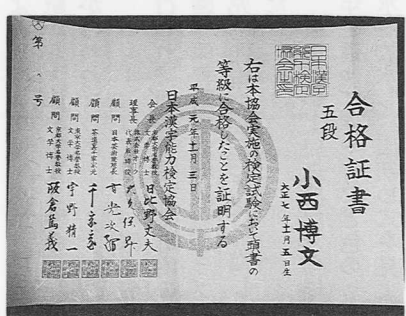 合格証書
五段
小西博文
大正七年十一月五日生
右は本協会実施の検定試験において頭書の
等級に合格したことを証明する
平成元年十一月三日
日本漢字能力検定協会
会長 文学博士 日比野丈夫
理事長 大久保昇
顧問
顧問 茶道裏千家家元 千宗室
顧問 文学博士 宇野精一
顧問 文学博士 阪倉篤義
第 号